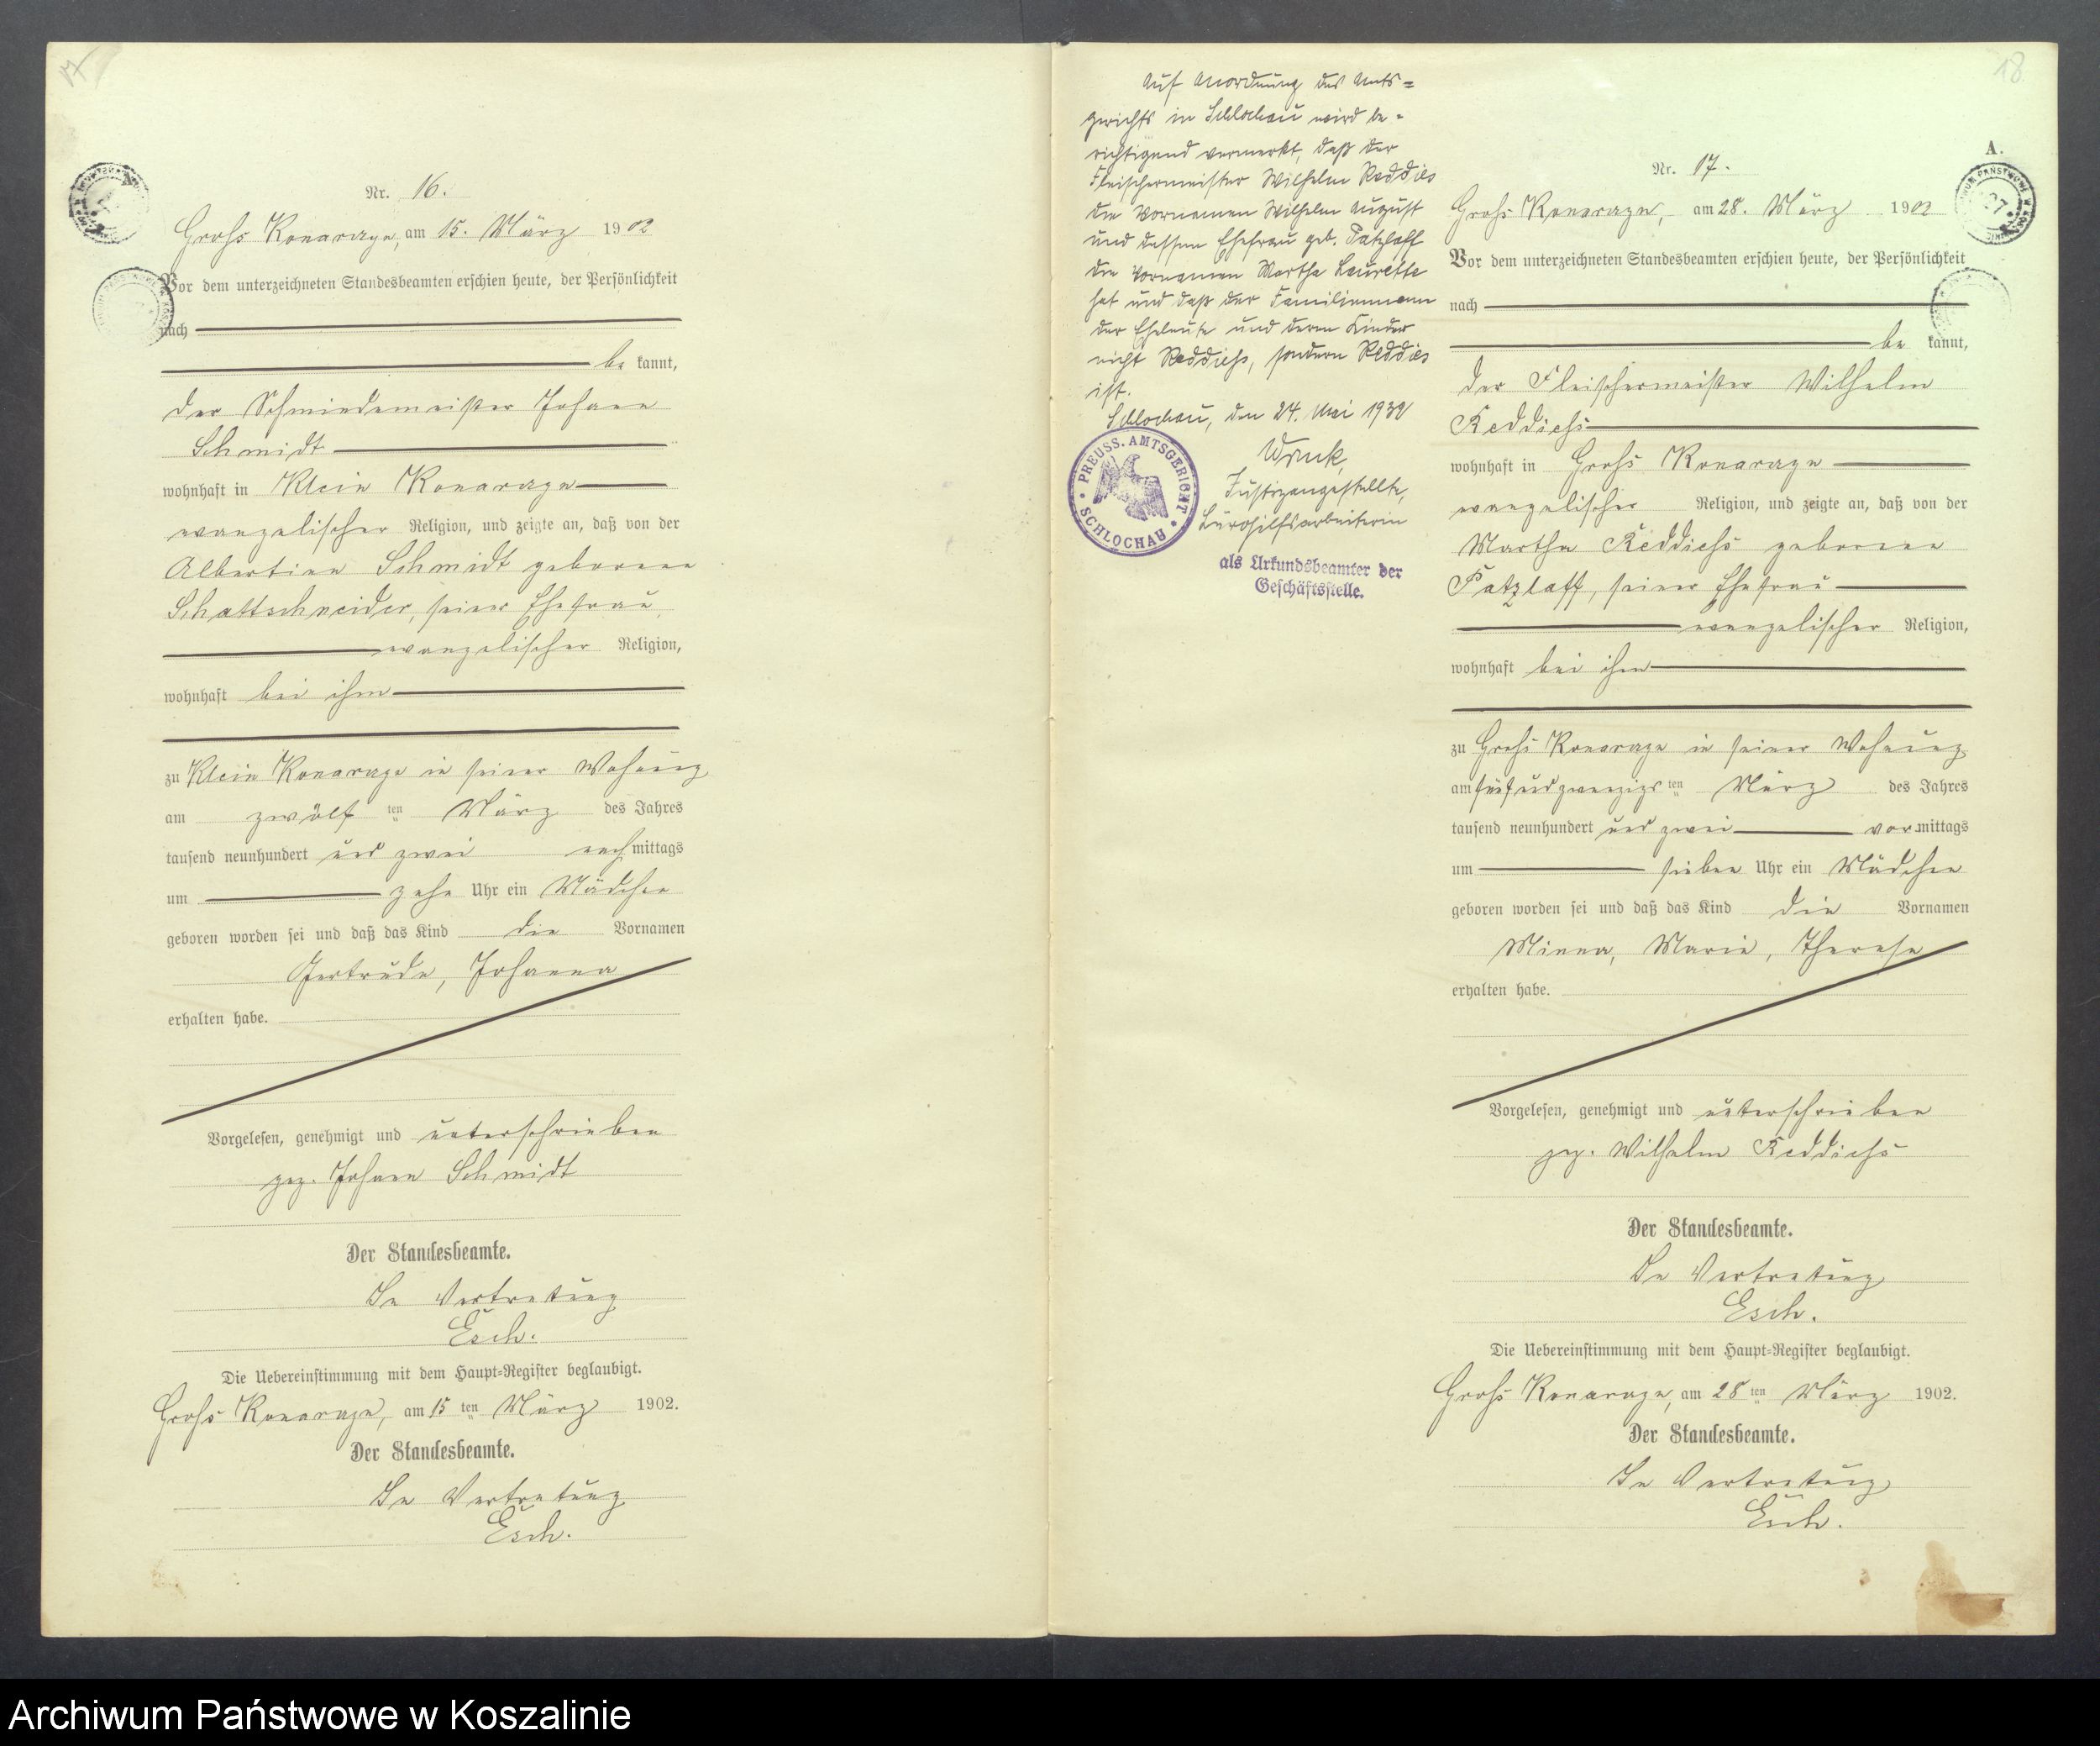 17
Nr. 16.
Groß Konarage, am 15. März 1902
Vor dem unterzeichneten Standesbeamten erschien heute, der Persönlichkeit
nach
be kannt,
der Schmiedemeister Johann
Schmidt
wohnhaft in Klein Konarage
evangelischer Religion, und zeigte an, daß von der
Albertine Schmidt geborene
Schattschneider, seiner Ehefrau,
evangelischer Religion,
wohnhaft bei ihm
zu Klein Konarage in seiner Wohnung
am zwölf ten März des Jahres
tausend neunhundert und zwei nachmittags
um zehn Uhr ein Mädchen
geboren worden sei und daß das Kind die Vornamen
Gertrude, Johanna
erhalten habe.
Vorgelesen, genehmigt und unterschrieben
gez. Johann Schmidt
Der Standesbeamte.
In Vertretung
Esch.
Die Uebereinstimmung mit dem Haupt-Register beglaubigt.
Groß Konarage, am 15 ten März 1902.
Der Standesbeamte.
In Vertretung
Esch.
Auf Anordnung des Amts=
gerichts in Schlochau wird be-
richtigend vermerkt, daß der
Fleischermeister Wilhelm Reddies
die Vornamen Wilhelm August
und dessen Ehefrau geb. Patzlaff
die Vornamen Martha Laurette
hat und daß der Familienname
der Eheleute und deren Kinder
nicht Reddiehs, sondern Reddies
ist.
Schlochau, den 24. Mai 1932
Justizangestellte,
Bürohilfsarbeiterin
als Urkundsbeamter der
Geschäftsstelle.
PREUSS. AMTSGERICHT
SCHLOCHAU
18
A.
Nr. 17.
Groß Konarage, am 28. März 1902
Vor dem unterzeichneten Standesbeamten erschien heute, der Persönlichkeit
nach
be kannt,
der Fleischermeister Wilhelm
Reddiehs
wohnhaft in Groß Konarage
evangelischer Religion, und zeigte an, daß von der
Martha Reddiehs geborene
Patzlaff, seiner Ehefrau
evangelischer Religion,
wohnhaft bei ihm
zu Groß Konarage in seiner Wohnung
am fünfundzwanzigs ten März des Jahres
tausend neunhundert und zwei vormittags
um sieben Uhr ein Mädchen
geboren worden sei und daß das Kind die Vornamen
Minna, Marie, Therese
erhalten habe.
Vorgelesen, genehmigt und unterschrieben
gez. Wilhelm Reddiehs
Der Standesbeamte.
In Vertretung
Esch.
Die Uebereinstimmung mit dem Haupt-Register beglaubigt.
Groß Konarage, am 28 ten März 1902.
Der Standesbeamte.
In Vertretung
Esch.
Archiwum Państwowe w Koszalinie